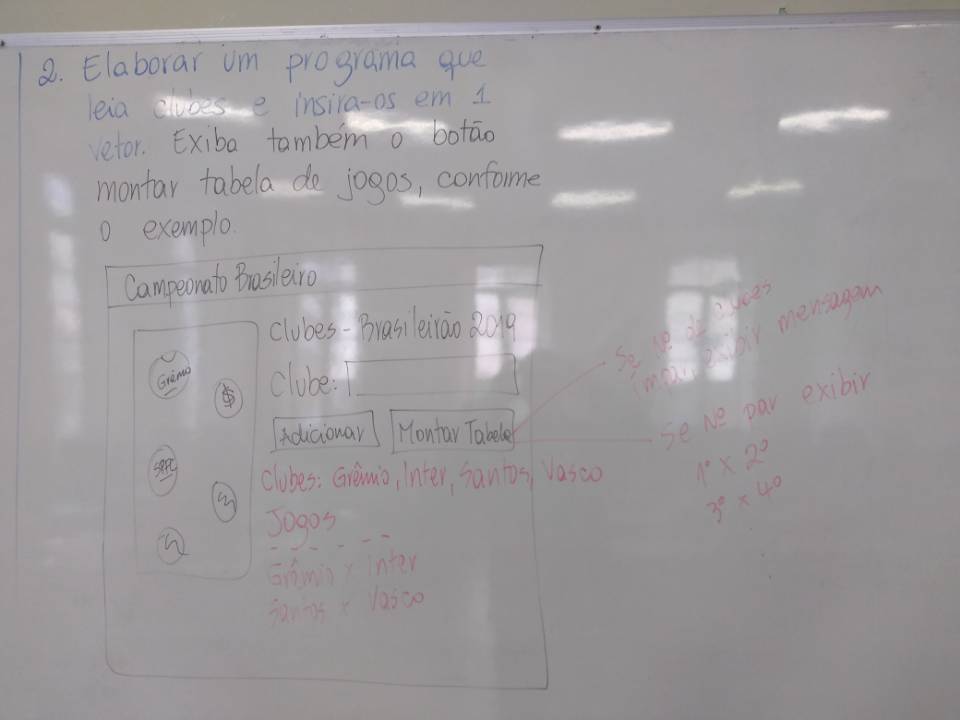 2. Elaborar um programa que
leia clubes e insira-os em 1
vetor. Exiba também o botão
montar tabela de jogos, conforme
o exemplo.
Campeonato Brasileiro
Clubes - Brasileirão 2019
Clube:
Grêmio
$
Adicionar
Montar Tabela
SRFC
Clubes: Grêmio, Inter, Santos, Vasco
Jogos
------
Grêmio x Inter
Santos x Vasco
Se Nº de clubes
ímpar, exibir mensagem
Se Nº par exibir
1º x 2º
3º x 4º